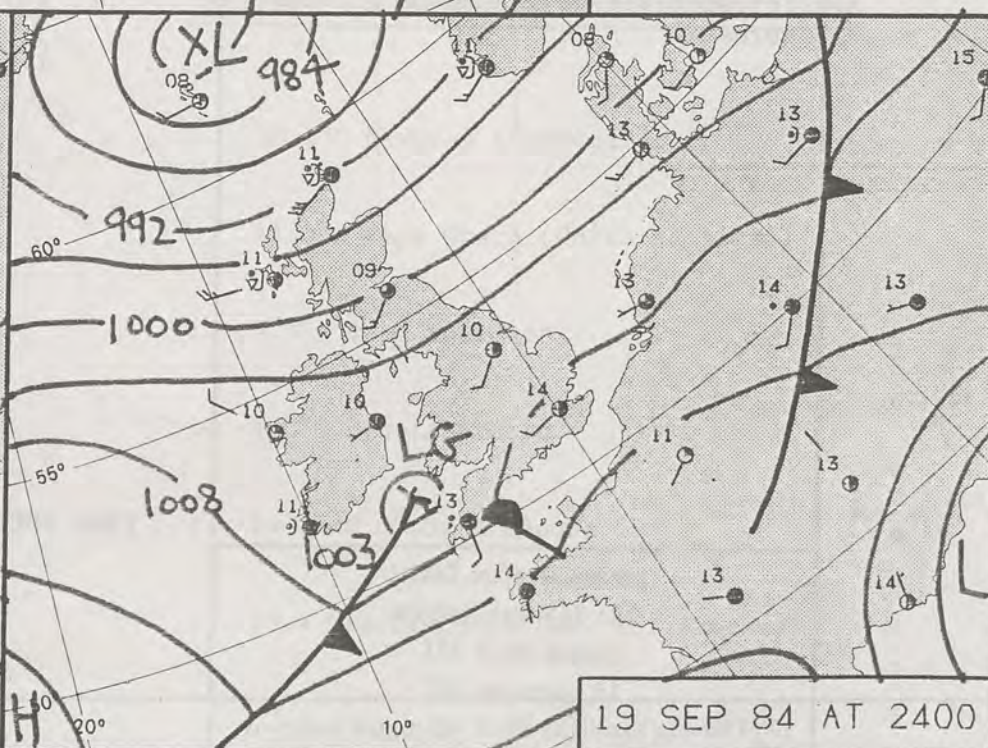 XL
984
08
11
08
10
15
13
13
11
992
60°
11
09
13
14
13
1000
10
14
10
10
LG
11
13
55°
1008
13
11
1003
14
13
14
L
H
50°
20°
10°
19 SEP 84 AT 2400